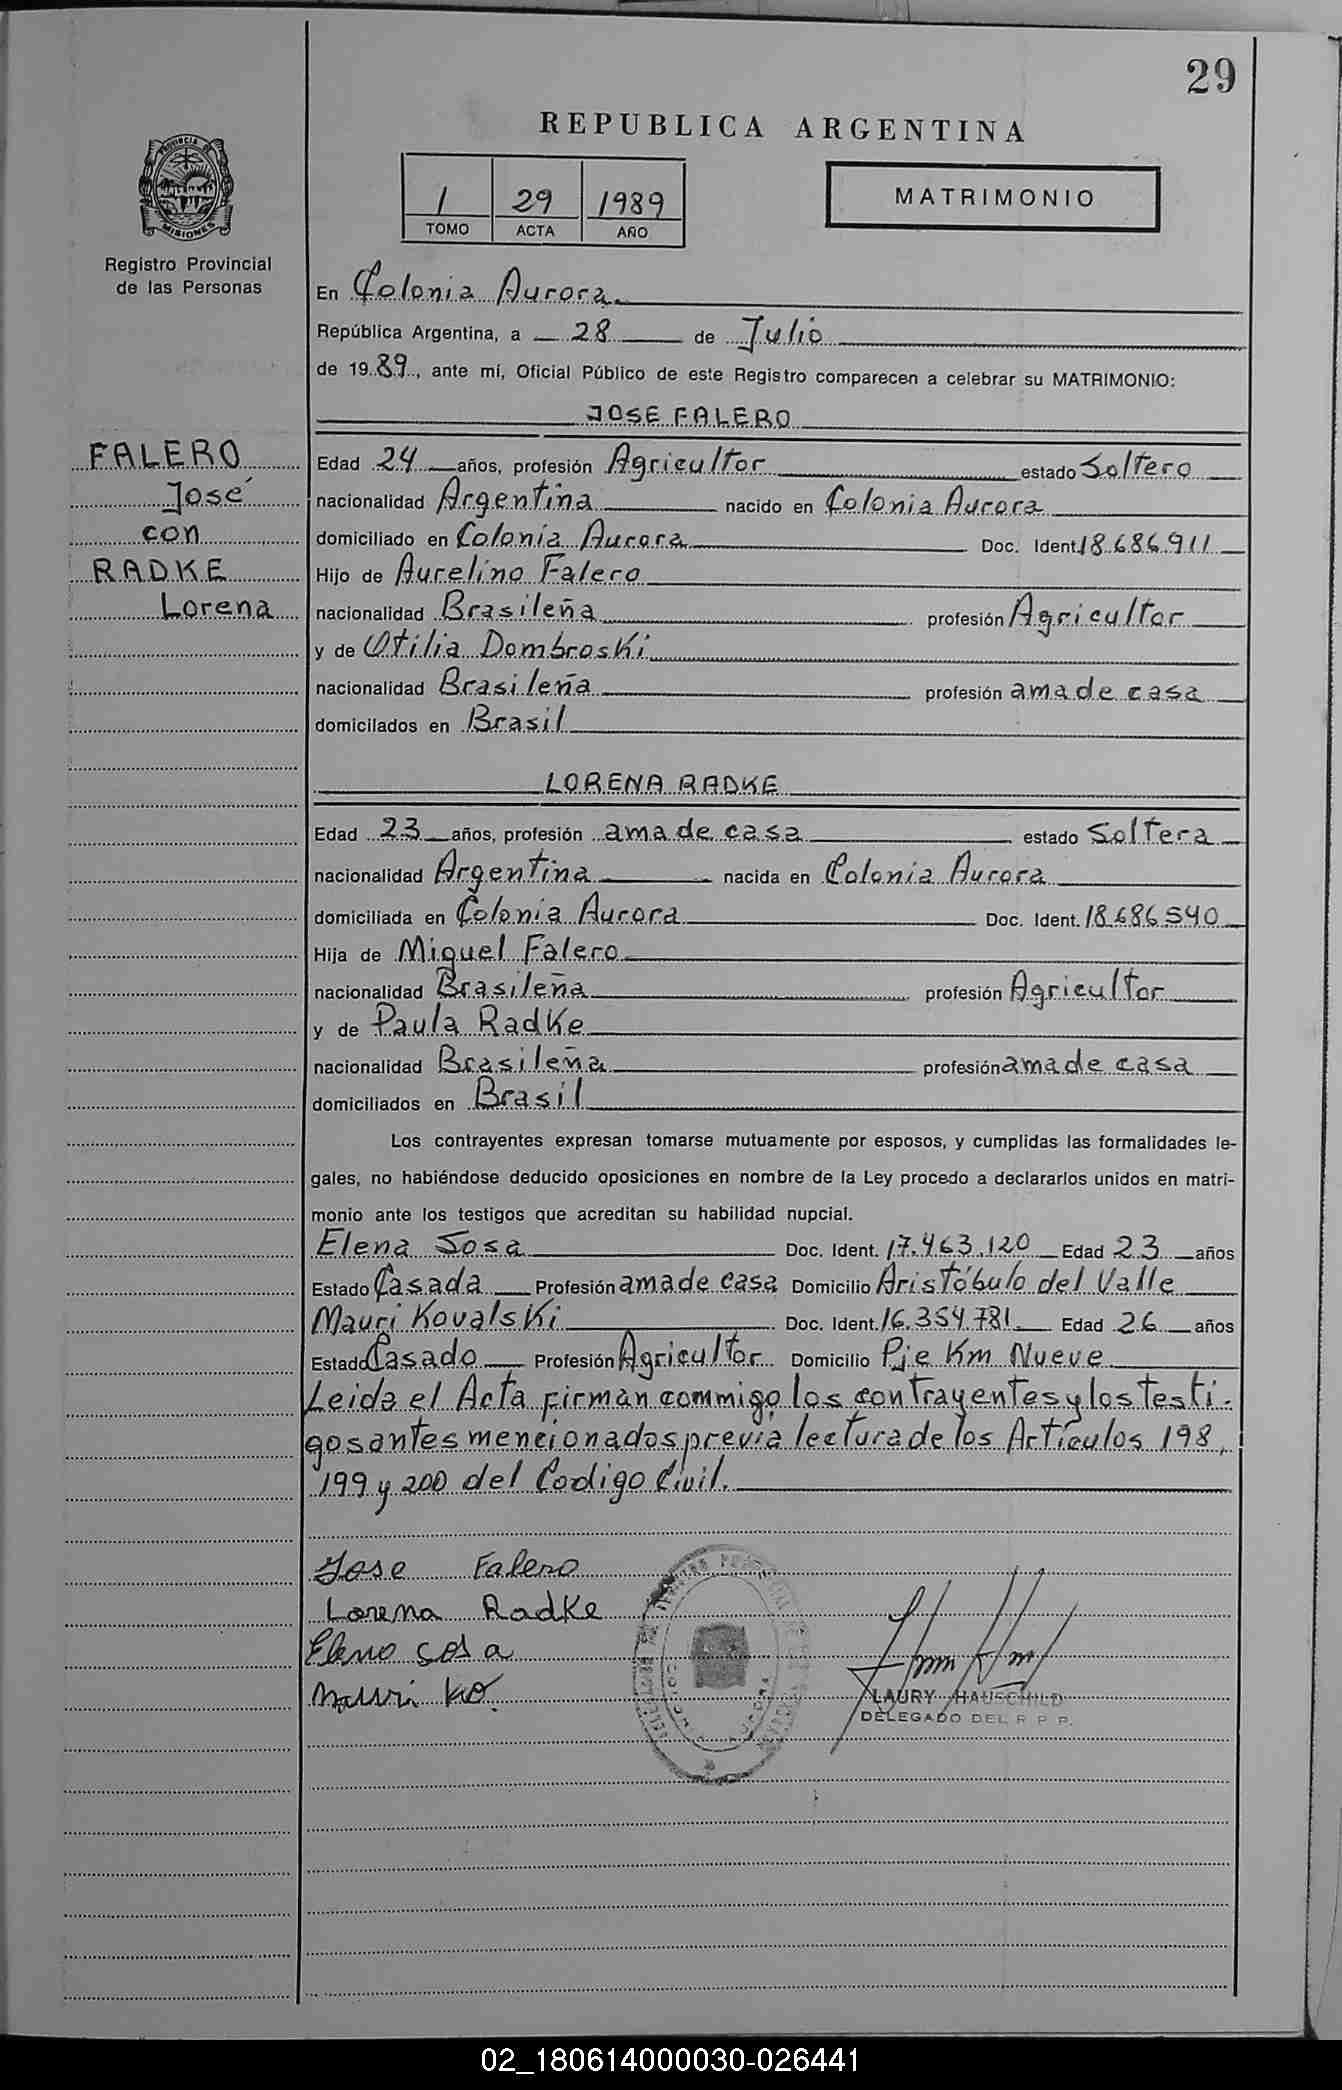 29
REPUBLICA ARGENTINA
PROVINCIA DE
MISIONES
1 29 1989
TOMO ACTA AÑO
MATRIMONIO
Registro Provincial
de las Personas
En Colonia Aurora
República Argentina, a 28 de Julio
de 1989, ante mí, Oficial Público de este Registro comparecen a celebrar su MATRIMONIO:
JOSE FALERO
FALERO
José
con
RADKE
Lorena
Edad 24 años, profesión Agricultor estado Soltero
nacionalidad Argentina nacido en Colonia Aurora
domiciliado en Colonia Aurora Doc. Ident. 18.686.911
Hijo de Aurelino Falero
nacionalidad Brasileña profesión Agricultor
y de Otilia Dombroski
nacionalidad Brasileña profesión ama de casa
domicilados en Brasil
LORENA RADKE
Edad 23 años, profesión ama de casa estado Soltera
nacionalidad Argentina nacida en Colonia Aurora
domiciliada en Colonia Aurora Doc. Ident. 18.686540
Hija de Miguel Falero
nacionalidad Brasileña profesión Agricultor
y de Paula Radke
nacionalidad Brasileña profesión ama de casa
domiciliados en Brasil
Los contrayentes expresan tomarse mutuamente por esposos, y cumplidas las formalidades le-
gales, no habiéndose deducido oposiciones en nombre de la Ley procedo a declararlos unidos en matri-
monio ante los testigos que acreditan su habilidad nupcial.
Elena Sosa Doc. Ident. 17.463.120 Edad 23 años
Estado Casada Profesión ama de casa Domicilio Aristóbulo del Valle
Mauri Kovalski Doc. Ident. 16.354.781 Edad 26 años
Estado Casado Profesión Agricultor Domicilio Pje Km Nueve
Leida el Acta firman commigo los contrayentes y los testi-
gos antes mencionados previa lectura de los Artículos 198,
199 y 200 del Codigo Civil.
Jose Falero
Lorena Radke
Eleno sosa
Mauri Ko
LAURY HAUSCHILD
DELEGADO DEL R P P.
02_180614000030-026441